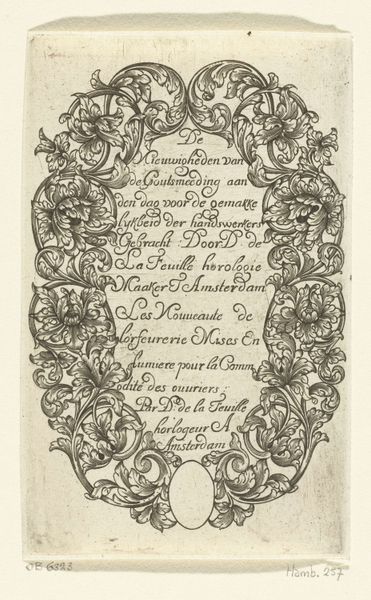 De
Nieuwigheden van
de Goutsmeeding aan
den dag voor de gemakke
lykheid der handswerkers
Gebracht : Door D. de
La Feuille horologie
Maaker T Amsterdam
Les Nouveaute de
lorfeurerie Mises En
lumiere pour la Comm
odite des ouuriers :
Par D. de la Feuille
horlogeur A
Amsterdam
OB 6323
Hamb. 257